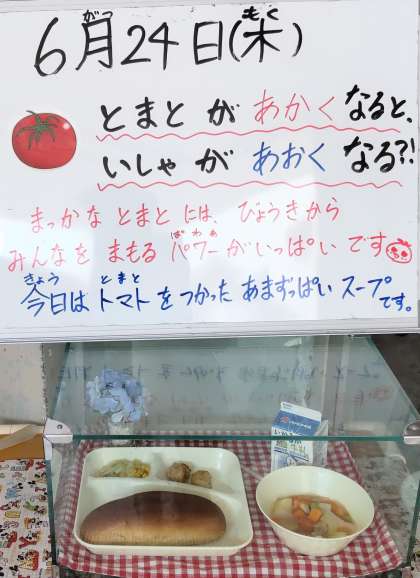 6月24日(木)
がつ もく
とまとがあかくなると、
いしゃがあおくなる?!
まっかなとまとには、びょうきから
みんなをまもるパワーがいっぱいです
ぱわあ
きょう とまと
今日はトマトをつかったあまずっぱいスープです。